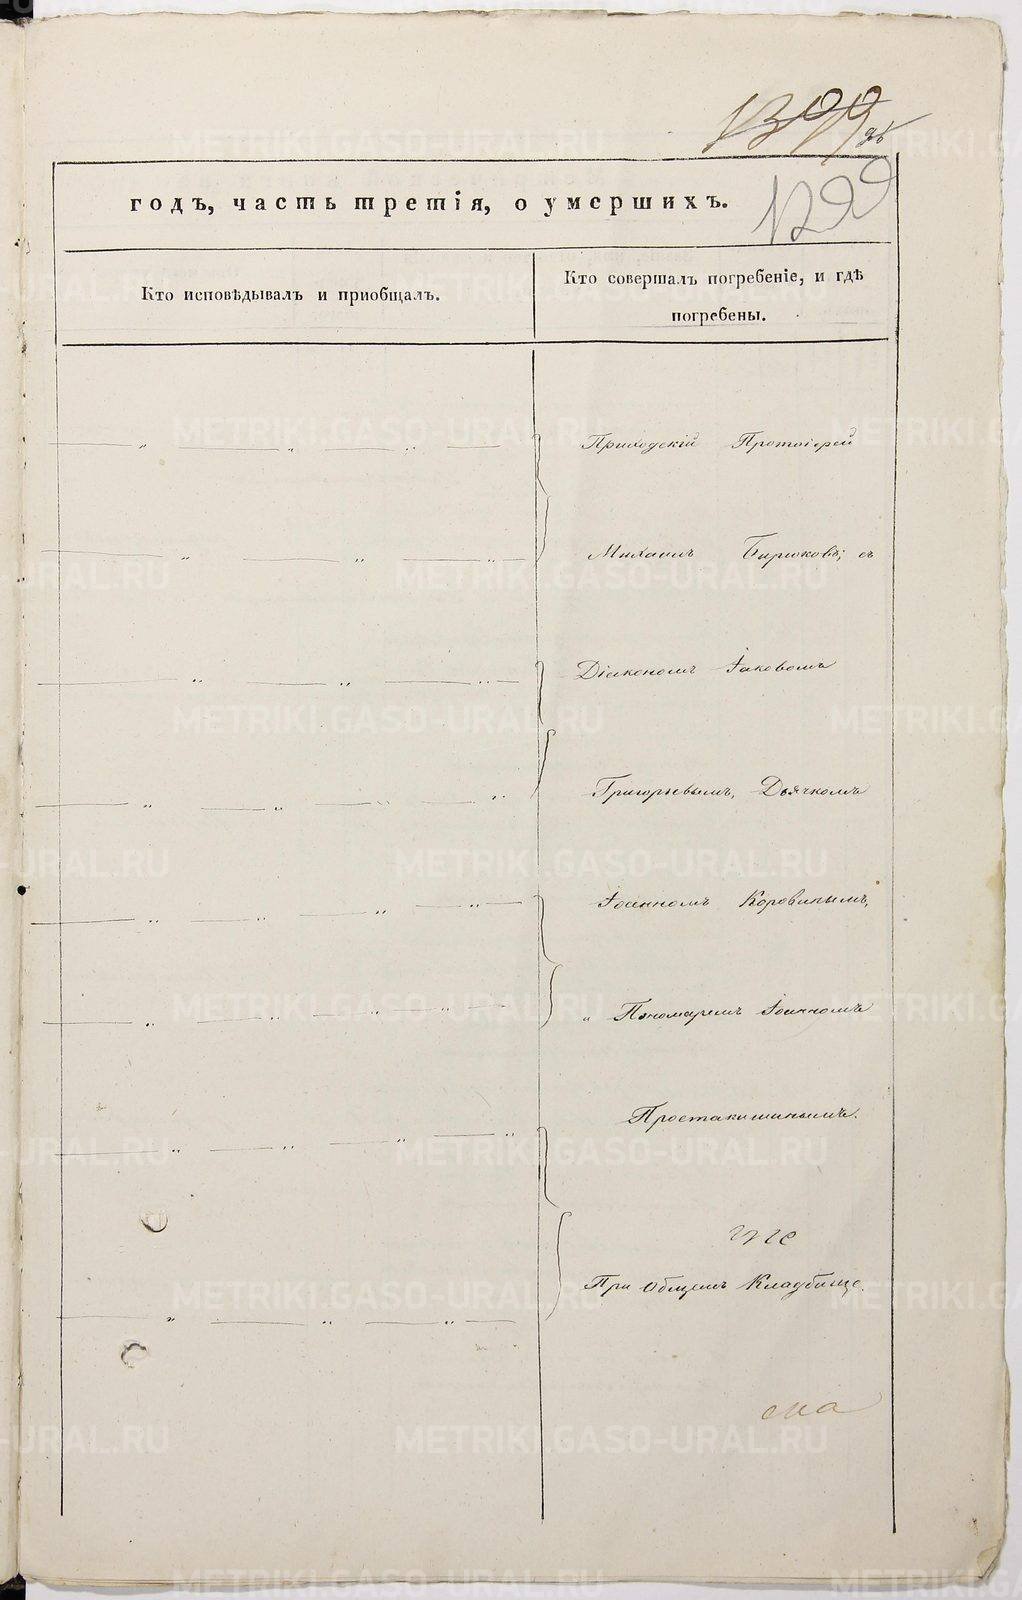 1399
1299
годъ, часть третія, о умершихъ.
Кто исповѣдывалъ и пріобщалъ.
Кто совершалъ погребеніе, и гдѣ
погребены.
Приходскій Протоіерей
Михаилъ Бирюковъ; съ
Діакономъ Іаковомъ
Григорьевымъ, Дьячкомъ
Іоанномъ Коровинымъ,
Пономаремъ Іоанномъ
Простакишинымъ.
При Общемъ Кладбище.
METRIKI.GASO-URAL.RU